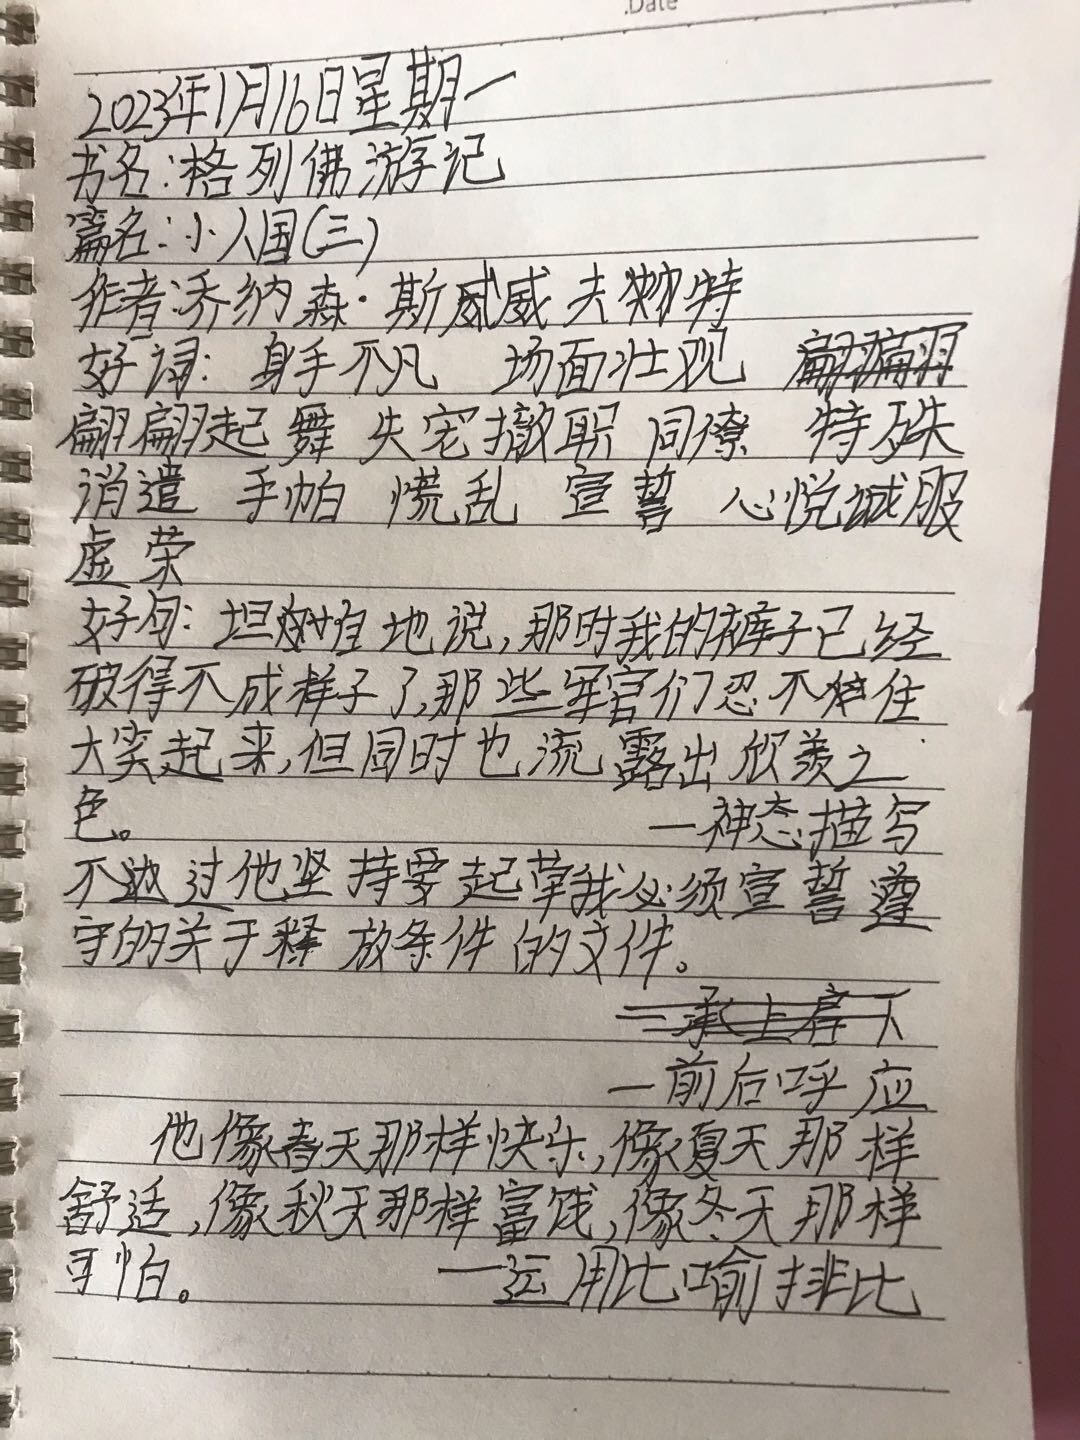 .Date
2023年1月16日星期一
书名:格列佛游记
篇名:小人国(三)
作者:乔纳森·斯威夫特
好词: 身手不凡 场面壮观
翩翩起舞 失宠撤职 同僚 特殊
消遣 手帕 慌乱 宣誓 心悦诚服
虚荣
好句: 坦地说,那时我的裤子已经
破得不成样子了,那些军官们忍不住
大笑起来,但同时也流露出欣羡之
色。 一神态描写
不过他坚持要起草我必须宣誓遵
守的关于释放条件的文件。
一承上启下
一前后呼应
他像春天那样快乐,像夏天那样
舒适,像秋天那样富饶,像冬天那样
可怕。 一运用比喻排比